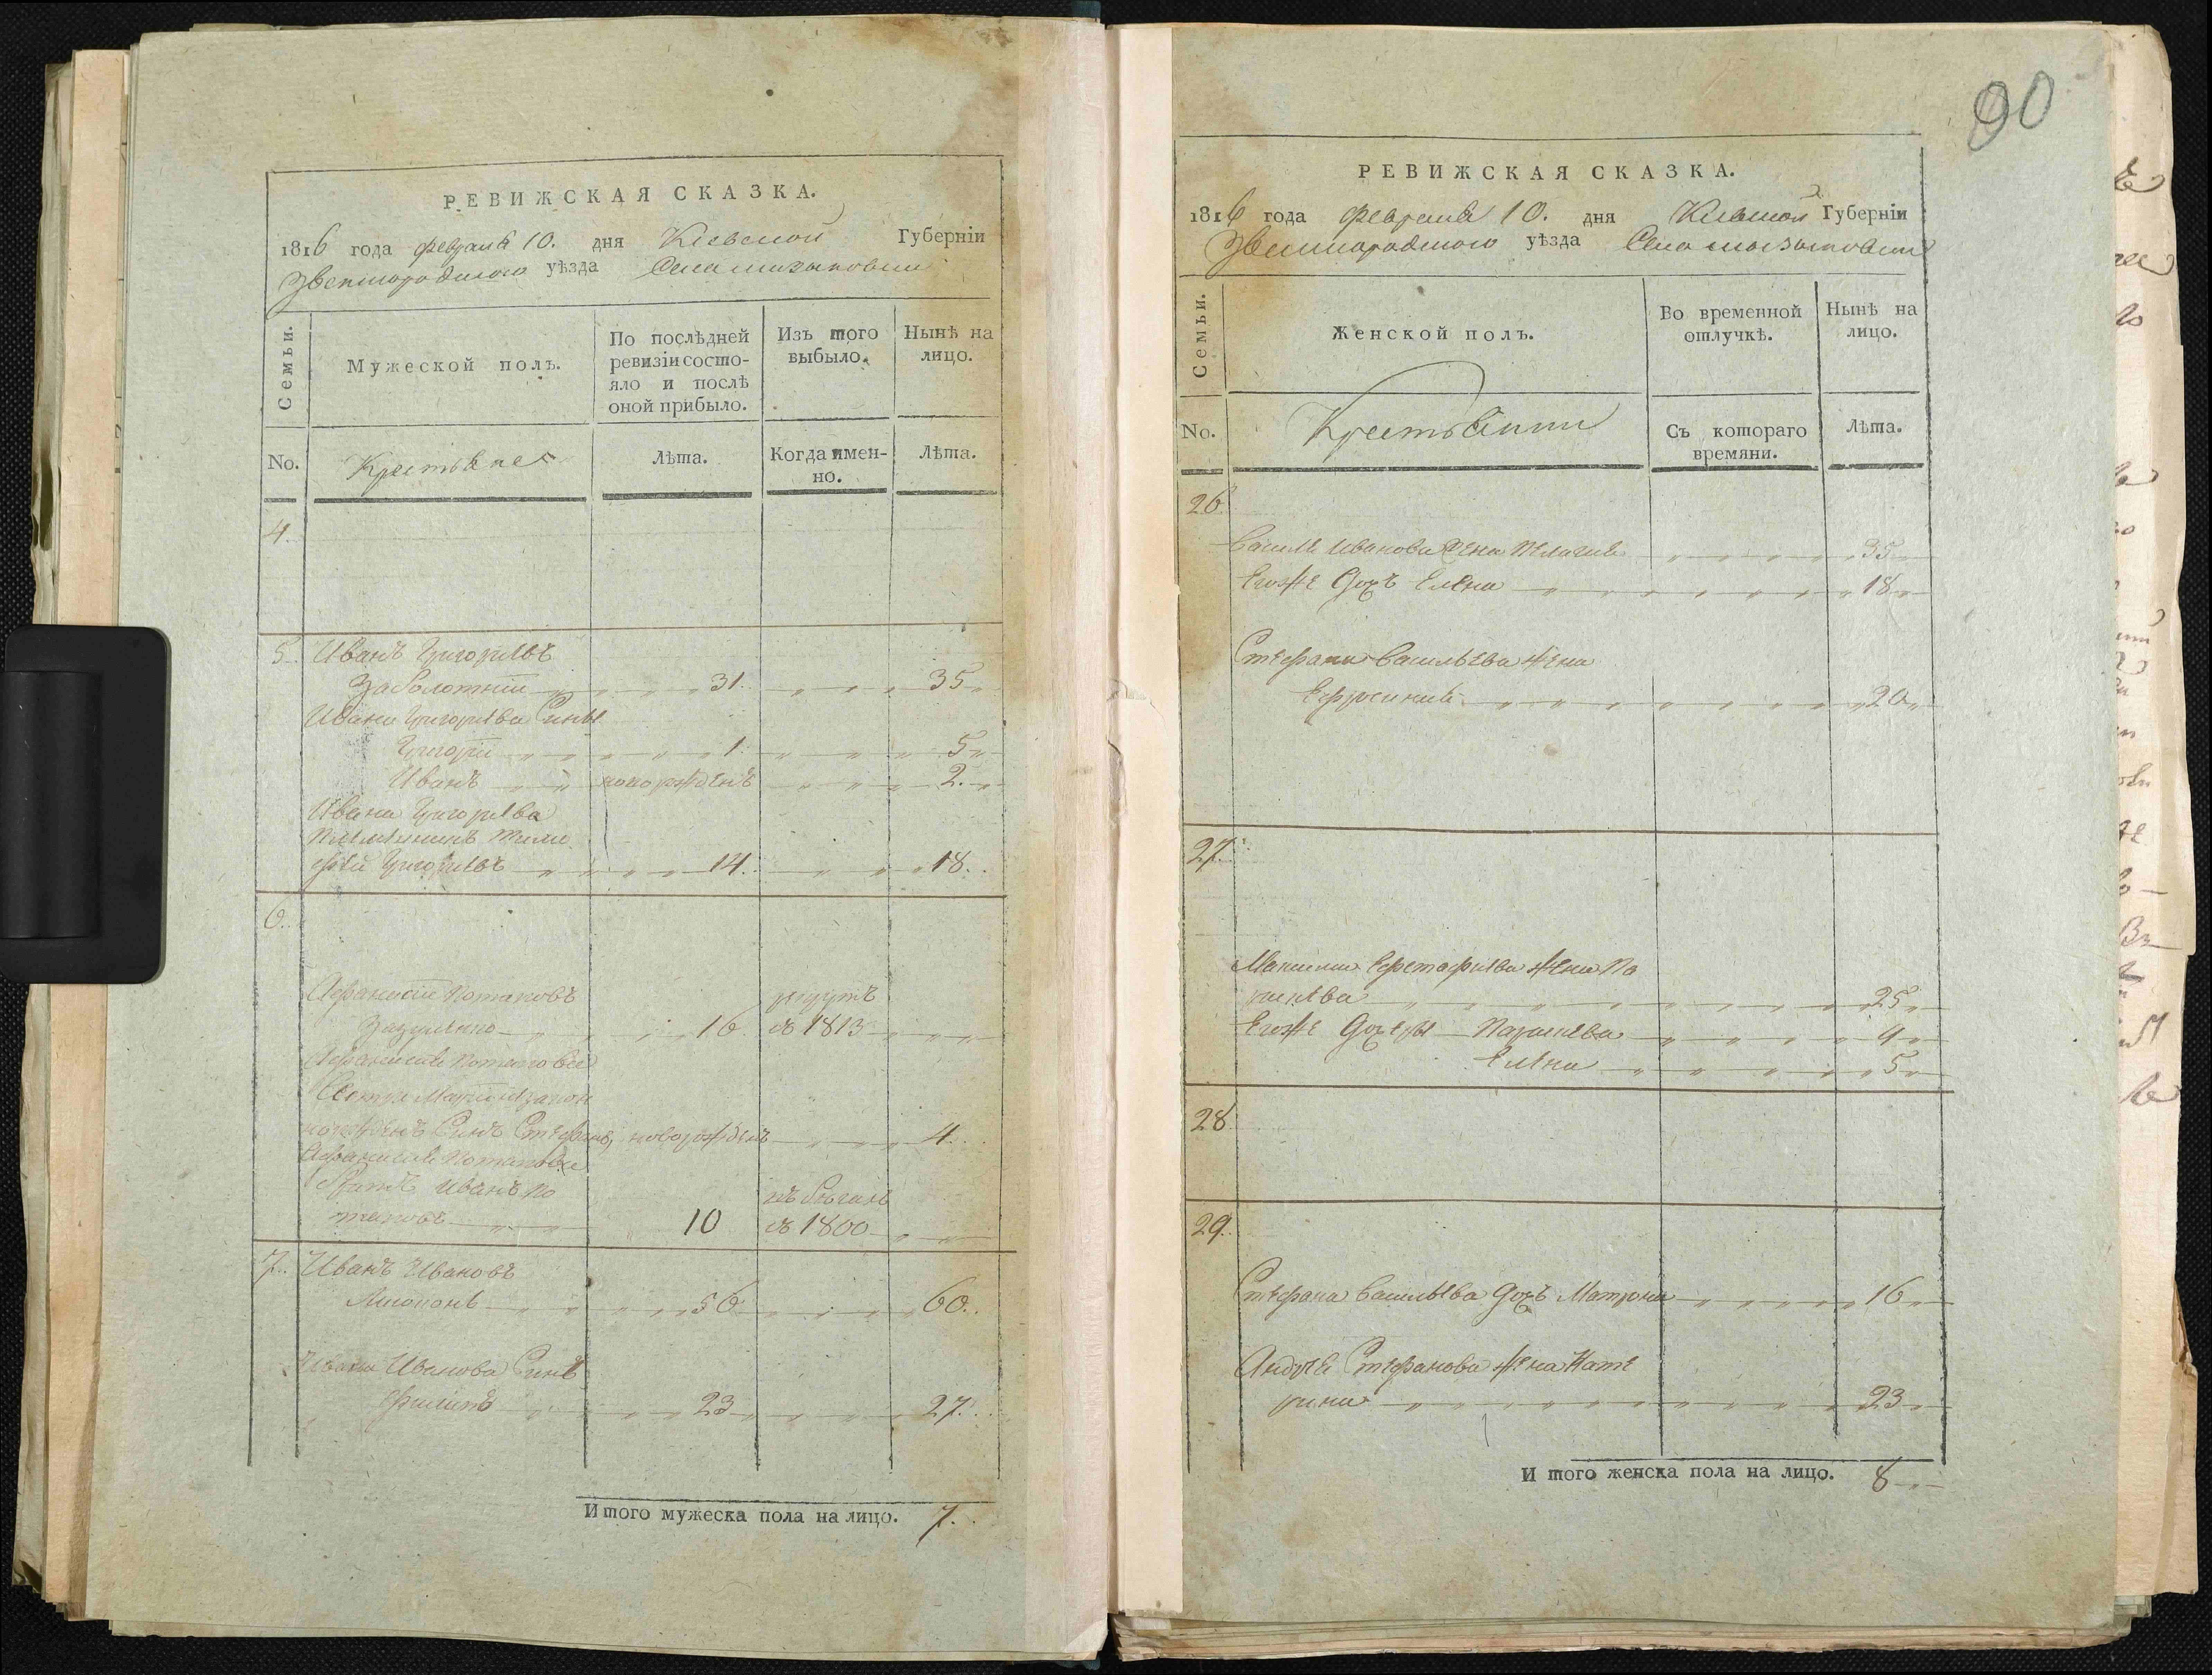 РЕВИЖСКАЯ СКАЗКА.
1816 года февраля 10. дня Киевской Губерніи
Звенигородского уѣзда Села
Семьи.
Мужеской полъ.
По послѣдней ревизіи состояло и послѣ оной прибыло.
Изъ того выбыло.
Нынѣ на лицо.
No.
Крестьяне
Лѣта.
Когда именно.
Лѣта.
4.
5. Иванъ Григорьевъ
Заболотній 31. 35
Ивана Григорьева Сины
Григорій 1. 5
Иванъ новорожденъ 2.
Ивана Григорьева
Племянникъ Тимо
фей Григорьевъ 14. 18.
6.
Афанасій Потаповъ рекрутъ
Зазуленко 16. въ 1813
Афанасия Потапова
Сестри Марии
Синъ Стефанъ, новорожденъ 4.
Афанасия Потапова
Братъ Иванъ По
таповъ 10 въ 1800
7. Иванъ Ивановъ
56 60.
Ивана Иванова Синъ
Филипъ 23 27.
Итого мужеска пола на лицо. 7.
90
РЕВИЖСКАЯ СКАЗКА.
1816 года февраля 10. дня Киевской Губерніи
Звенигородского уѣзда Села
Семьи.
Женской полъ.
Во временной отлучкѣ.
Нынѣ на лицо.
No.
Крестьянки
Съ котораго времяни.
Лѣта.
26.
Василя Иванова Жена Пелагия 35
Егоже Дочъ Елена 18
Стефана Васильева Жена
Ефросиния 20
27.
Максима Жена Па
раскева 25
Егоже Дочеры Параскева
Елена 5
28
29.
Стефана Васильева Дочъ Матрона 16
Андрея Стефанова Жена Кате
рина 23
И того женска пола на лицо. 8